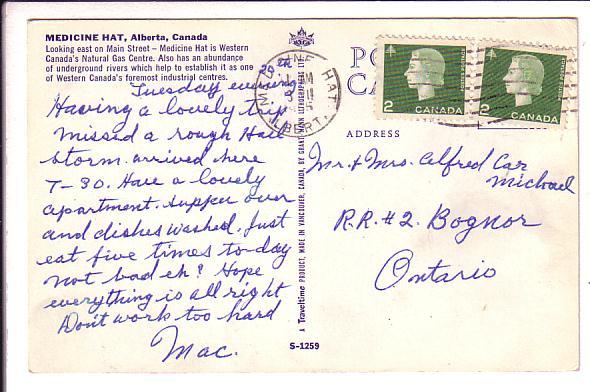 MEDICINE HAT, Alberta, Canada
Looking east on Main Street – Medicine Hat is Western
Canada's Natural Gas Centre. Also has an abundance
of underground rivers which help to establish it as one
of Western Canada's foremost industrial centres.
20th
Tuesday evening
Having a lovely trip
missed a rough Hail
storm. arrived here
7-30. Have a lovely
apartment. supper over
and dishes washed. Just
eat five times to-day
not bad eh? Hope
everything is all right
Don't work too hard
Mac.
A Traveltime PRODUCT, MADE IN VANCOUVER, CANADA, BY GRANT-MANN LITHOGRAPHERS LTD.
S-1259
PO
CA
ADDRESS
MEDICINE HAT
ALBERTA
2
CANADA
2
CANADA
Mr & Mrs. Alfred Car
michael
R.R.#2. Bognor
Ontario